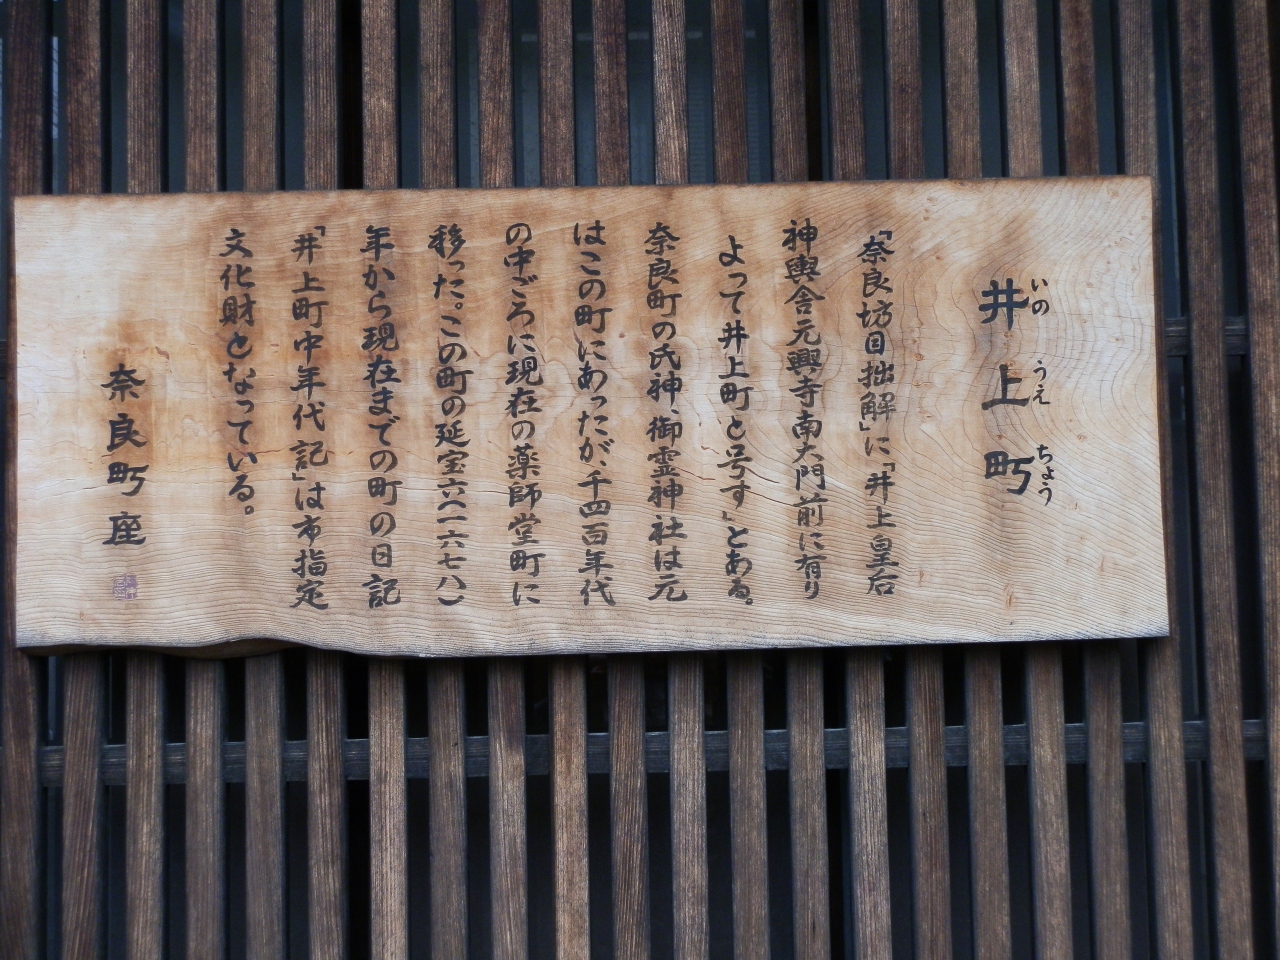 井上町
いのうえちょう
「奈良坊目拙解」に「井上皇后
神輿舎元興寺南大門前に有り
よって井上町と号す」とある。
奈良町の氏神、御霊神社は元
はこの町にあったが、千四百年代
の中ごろに現在の薬師堂町に
移った。この町の延宝六(一六七八)
年から現在までの町の日記
「井上町中年代記」は市指定
文化財となっている。
奈良町座